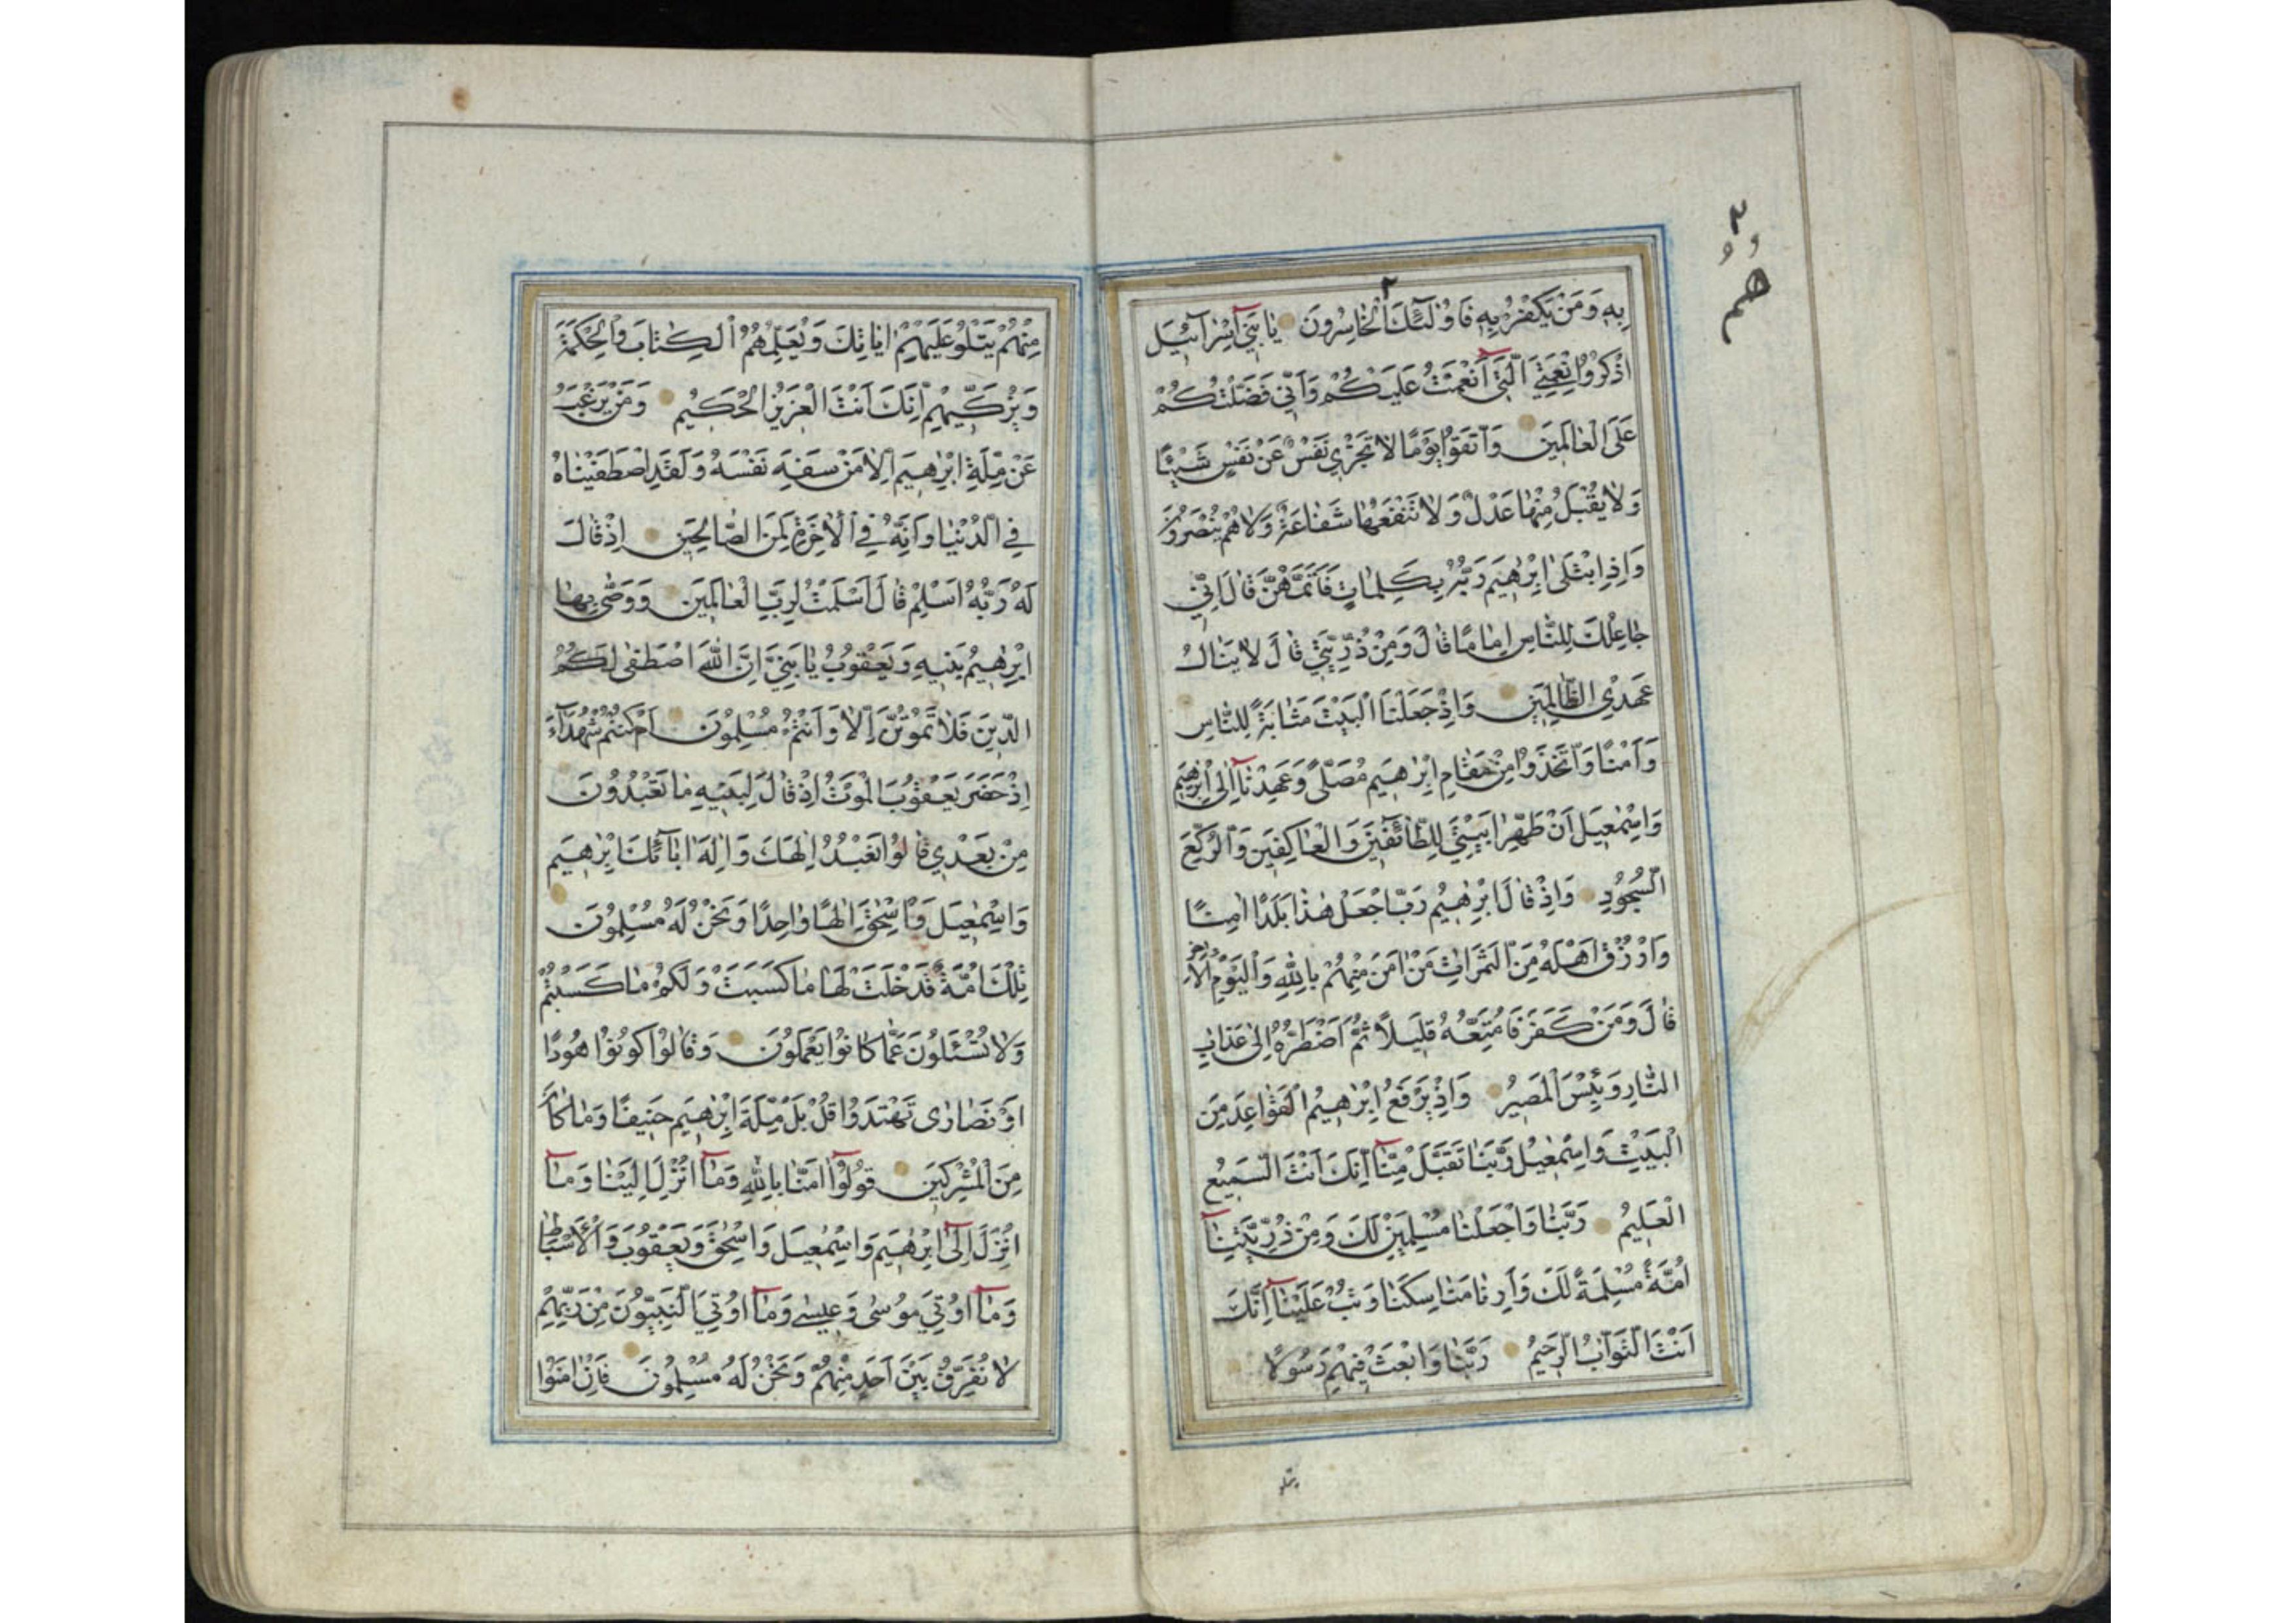 بِهِ وَمَنْ يَكْفُرْ بِهِ فَاُولٰٓئِكَ الْخَاسِرُونَ يَا بَنِيٓ اِسْرَآئِيلَ
اذْكُرُوا نِعْمَتِيَ الَّتِيٓ اَنْعَمْتُ عَلَيْكُمْ وَاَنِّي فَضَّلْتُكُمْ
عَلَى الْعَالَمِينَ وَاتَّقُوا يَوْمًا لَا تَجْزِي نَفْسٌ عَنْ نَفْسٍ شَيْئًا
وَلَا يُقْبَلُ مِنْهَا عَدْلٌ وَلَا تَنْفَعُهَا شَفَاعَةٌ وَلَا هُمْ يُنْصَرُونَ
وَاِذِ ابْتَلٰى اِبْرٰهِيمَ رَبُّهُ بِكَلِمَاتٍ فَاَتَمَّهُنَّ قَالَ اِنِّي
جَاعِلُكَ لِلنَّاسِ اِمَامًا قَالَ وَمِنْ ذُرِّيَّتِي قَالَ لَا يَنَالُ
عَهْدِي الظَّالِمِينَ وَاِذْ جَعَلْنَا الْبَيْتَ مَثَابَةً لِلنَّاسِ
وَاَمْنًا وَاتَّخَذُوا مِنْ مَقَامِ اِبْرٰهِيمَ مُصَلًّى وَعَهِدْنَآ اِلٰى اِبْرٰهِيمَ
وَاِسْمٰعِيلَ اَنْ طَهِّرَا بَيْتِيَ لِلطَّآئِفِينَ وَالْعَاكِفِينَ وَالرُّكَّعِ
السُّجُودِ وَاِذْ قَالَ اِبْرٰهِيمُ رَبِّ اجْعَلْ هٰذَا بَلَدًا اٰمِنًا
وَارْزُقْ اَهْلَهُ مِنَ الثَّمَرَاتِ مَنْ اٰمَنَ مِنْهُمْ بِاللّٰهِ وَالْيَوْمِ الْاٰخِرِ
قَالَ وَمَنْ كَفَرَ فَاُمَتِّعُهُ قَلِيلًا ثُمَّ اَضْطَرُّهُ اِلٰى عَذَابِ
النَّارِ وَبِئْسَ الْمَصِيرُ وَاِذْ يَرْفَعُ اِبْرٰهِيمُ الْقَوَاعِدَ مِنَ
الْبَيْتِ وَاِسْمٰعِيلُ رَبَّنَا تَقَبَّلْ مِنَّآ اِنَّكَ اَنْتَ السَّمِيعُ
الْعَلِيمُ رَبَّنَا وَاجْعَلْنَا مُسْلِمَيْنِ لَكَ وَمِنْ ذُرِّيَّتِنَآ
اُمَّةً مُسْلِمَةً لَكَ وَاَرِنَا مَنَاسِكَنَا وَتُبْ عَلَيْنَآ اِنَّكَ
اَنْتَ التَّوَّابُ الرَّحِيمُ رَبَّنَا وَابْعَثْ فِيهِمْ رَسُولًا
مِنْهُمْ يَتْلُوا عَلَيْهِمْ اٰيَاتِكَ وَيُعَلِّمُهُمُ الْكِتَابَ وَالْحِكْمَةَ
وَيُزَكِّيهِمْ اِنَّكَ اَنْتَ الْعَزِيزُ الْحَكِيمُ وَمَنْ يَرْغَبُ
عَنْ مِلَّةِ اِبْرٰهِيمَ اِلَّا مَنْ سَفِهَ نَفْسَهُ وَلَقَدِ اصْطَفَيْنَاهُ
فِي الدُّنْيَا وَاِنَّهُ فِي الْاٰخِرَةِ لَمِنَ الصَّالِحِينَ اِذْ قَالَ
لَهُ رَبُّهُ اَسْلِمْ قَالَ اَسْلَمْتُ لِرَبِّ الْعَالَمِينَ وَوَصّٰى بِهَا
اِبْرٰهِيمُ بَنِيهِ وَيَعْقُوبُ يَا بَنِيَّ اِنَّ اللّٰهَ اصْطَفٰى لَكُمُ
الدِّينَ فَلَا تَمُوتُنَّ اِلَّا وَاَنْتُمْ مُسْلِمُونَ اَمْ كُنْتُمْ شُهَدَآءَ
اِذْ حَضَرَ يَعْقُوبَ الْمَوْتُ اِذْ قَالَ لِبَنِيهِ مَا تَعْبُدُونَ
مِنْ بَعْدِي قَالُوا نَعْبُدُ اِلٰهَكَ وَاِلٰهَ اٰبَآئِكَ اِبْرٰهِيمَ
وَاِسْمٰعِيلَ وَاِسْحٰقَ اِلٰهًا وَاحِدًا وَنَحْنُ لَهُ مُسْلِمُونَ
تِلْكَ اُمَّةٌ قَدْ خَلَتْ لَهَا مَا كَسَبَتْ وَلَكُمْ مَا كَسَبْتُمْ
وَلَا تُسْئَلُونَ عَمَّا كَانُوا يَعْمَلُونَ وَقَالُوا كُونُوا هُودًا
اَوْ نَصَارٰى تَهْتَدُوا قُلْ بَلْ مِلَّةَ اِبْرٰهِيمَ حَنِيفًا وَمَا كَانَ
مِنَ الْمُشْرِكِينَ قُولُوٓا اٰمَنَّا بِاللّٰهِ وَمَآ اُنْزِلَ اِلَيْنَا وَمَآ
اُنْزِلَ اِلٰٓى اِبْرٰهِيمَ وَاِسْمٰعِيلَ وَاِسْحٰقَ وَيَعْقُوبَ وَالْاَسْبَاطِ
وَمَآ اُوتِيَ مُوسٰى وَعِيسٰى وَمَآ اُوتِيَ النَّبِيُّونَ مِنْ رَبِّهِمْ
لَا نُفَرِّقُ بَيْنَ اَحَدٍ مِنْهُمْ وَنَحْنُ لَهُ مُسْلِمُونَ فَاِنْ اٰمَنُوا